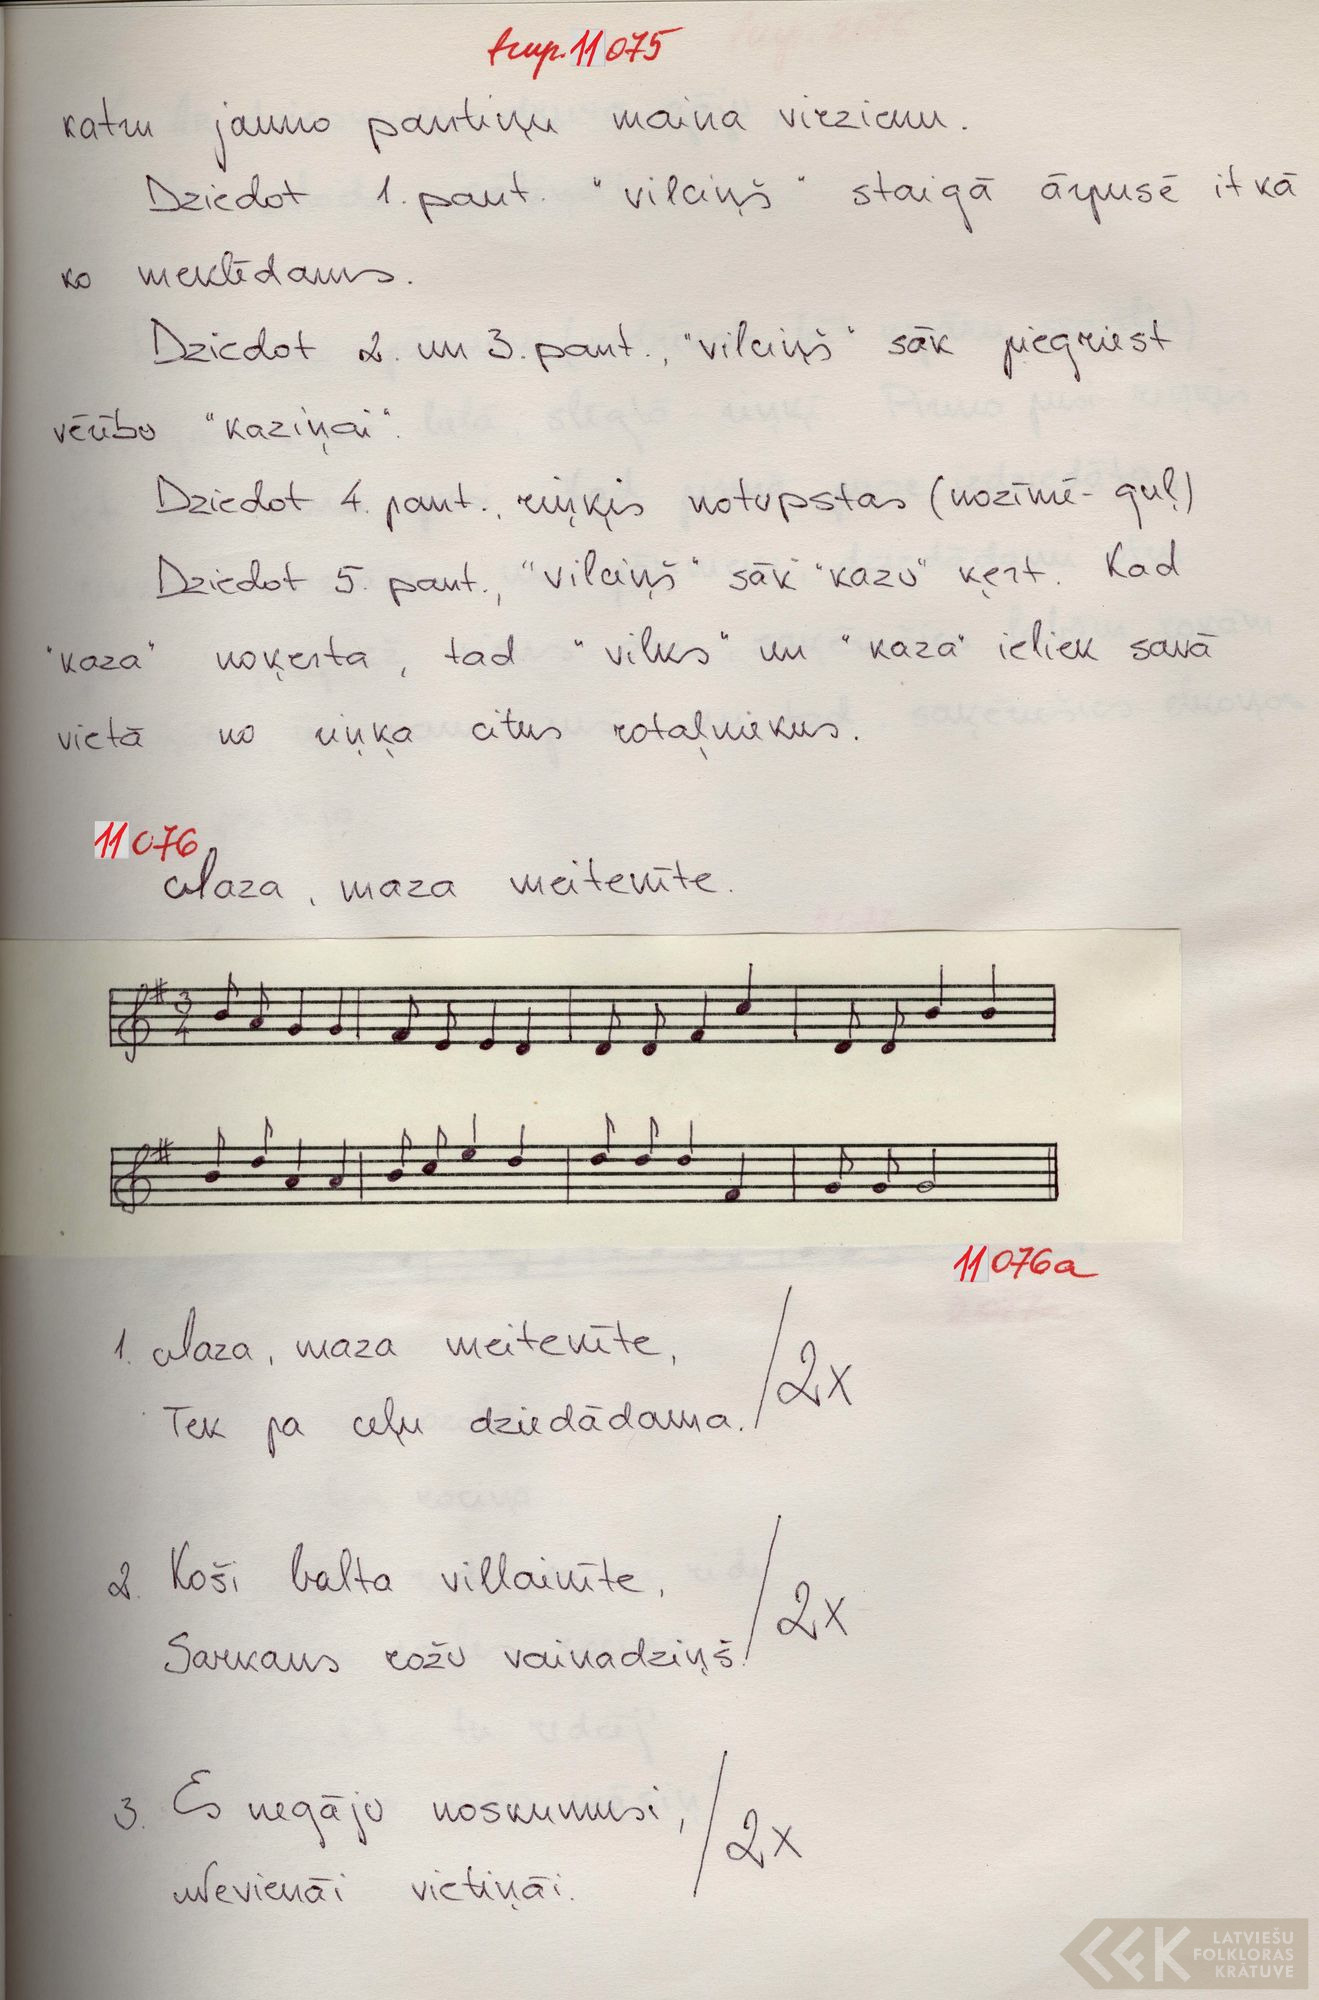 turp. 11075
katru jauno pantiņu maina virzienu.
Dziedot 1. pant. "vilciņš" staigā ārpusē it kā
ko meklēdams.
Dziedot 2. un 3. pant., "vilciņš" sāk piegriest
vērību "kaziņai".
Dziedot 4. pant., riņķis notupstas (nozīmē - guļ)
Dziedot 5. pant., "vilciņš" sāk "kazu" ķert. Kad
"kaza" noķerta, tad "vilks" un "kaza" ieliek savā
vietā no riņķa citus rotaļniekus.
11076
Maza, maza meitenīte.
3
4
11076a
1. Maza, maza meitenīte,
Tek pa ceļu dziedādama. / 2x
2. Koši balta villainīte,
Sarkans rožu vainadziņš. / 2x
3. Es negāju noskumusi,
Nevienāi vietiņāi. / 2x
LATVIEŠU
FOLKLORAS
KRĀTUVE